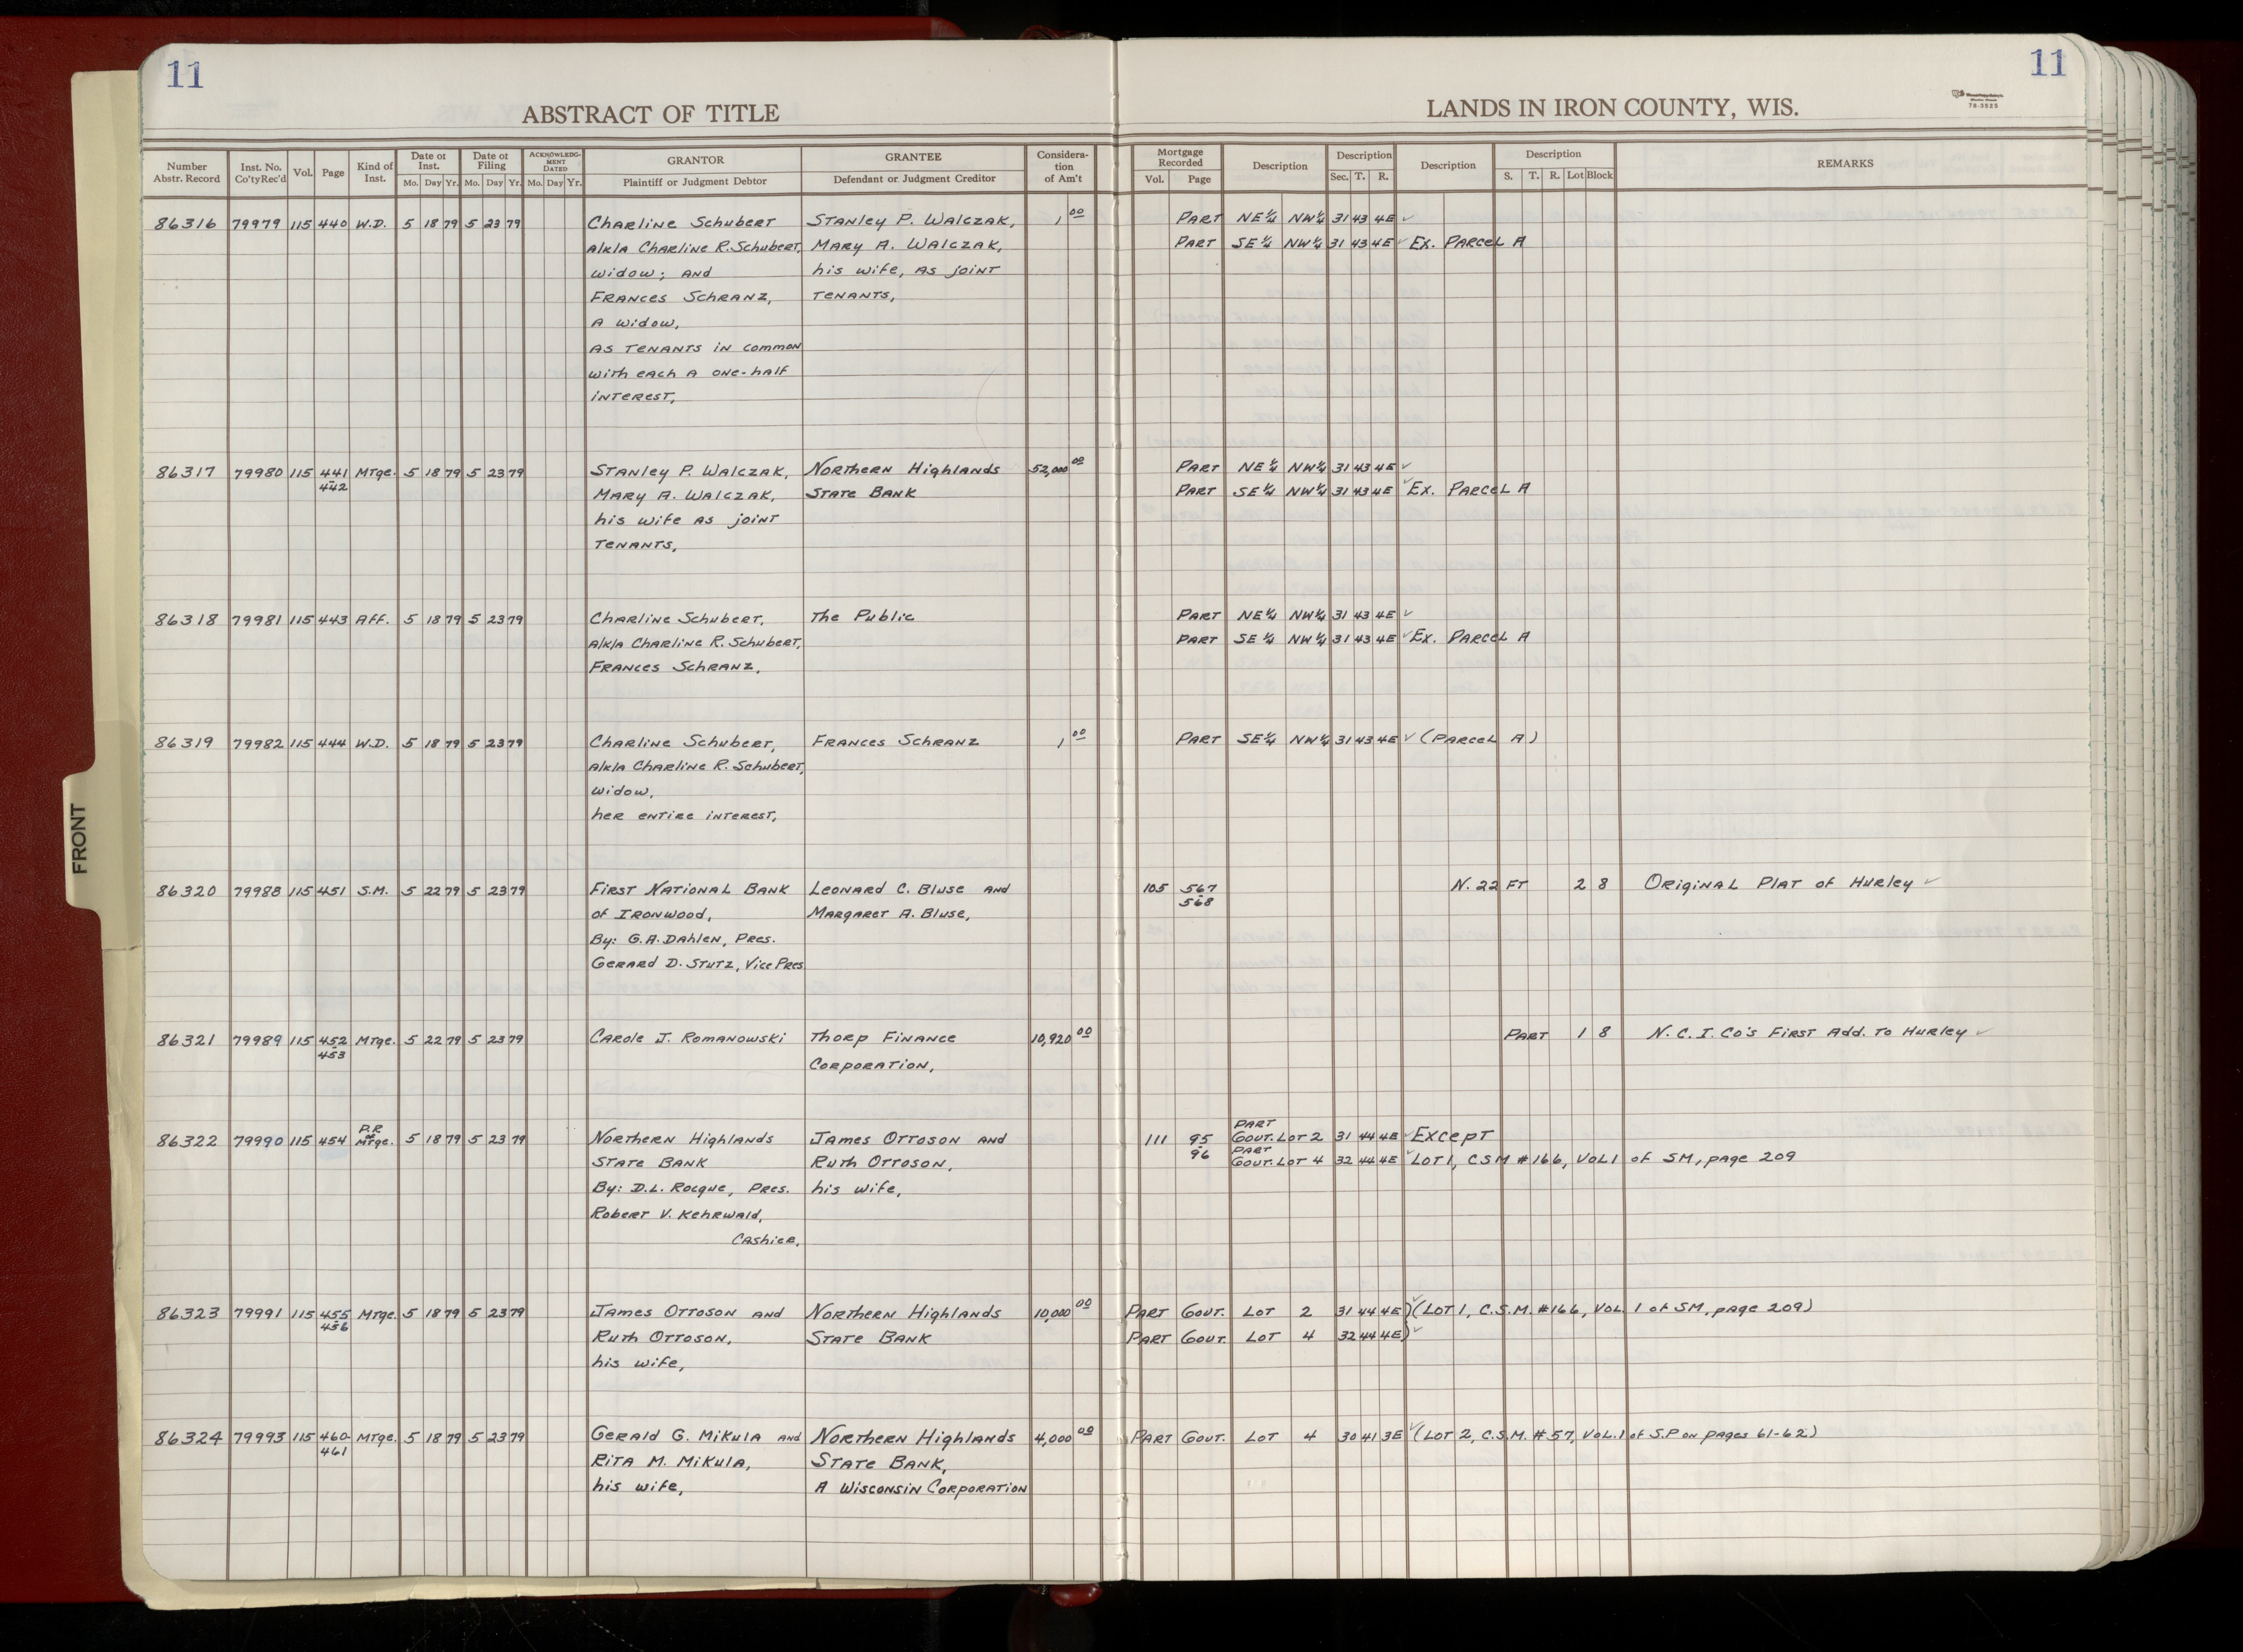 11
11
ABSTRACT OF TITLE
LANDS IN IRON COUNTY, WIS.
78-3625
Number Abstr. Record
Inst. No. Co'ty Rec'd
Vol.
Page
Kind of Inst.
Date of Inst.
Mo. Day Yr.
Date of Filing
Mo. Day Yr.
ACKNOWLEDGMENT DATED
Mo. Day Yr.
GRANTOR
Plaintiff or Judgment Debtor
GRANTEE
Defendant or Judgment Creditor
Consideration of Am't
Mortgage Recorded
Vol. Page
Description
Description
Sec. T. R.
Description
Description
S. T. R. Lot Block
REMARKS
86316 79979 115 440 W.D. 5 18 79 5 23 79 Charline Schubert Stanley P. Walczak, 1,00 Part NE¼ NW¼ 31 43 4E ✓
a/k/a Charline R. Schubert, Mary A. Walczak, Part SE¼ NW¼ 31 43 4E ✓ Ex. Parcel A
widow; and his wife, as joint
Frances Schranz, tenants,
a widow,
as tenants in common
with each a one-half
interest,
86317 79980 115 441 Mtge. 5 18 79 5 23 79 Stanley P. Walczak, Northern Highlands 52,000 00 Part NE¼ NW¼ 31 43 4E ✓
442 Mary A. Walczak, State Bank Part SE¼ NW¼ 31 43 4E ✓ Ex. Parcel A
his wife as joint
tenants,
86318 79981 115 443 Aff. 5 18 79 5 23 79 Charline Schubert, The Public Part NE¼ NW¼ 31 43 4E ✓
a/k/a Charline R. Schubert, Part SE¼ NW¼ 31 43 4E ✓ Ex. Parcel A
Frances Schranz,
86319 79982 115 444 W.D. 5 18 79 5 23 79 Charline Schubert, Frances Schranz 1,00 Part SE¼ NW¼ 31 43 4E ✓ (Parcel A)
a/k/a Charline R. Schubert,
widow,
her entire interest,
86320 79988 115 451 S.M. 5 22 79 5 23 79 First National Bank Leonard C. Bluse and 105 567 N. 22 Ft 2 8 Original Plat of Hurley ✓
of Ironwood, Margaret A. Bluse, 568
By: G.A. Dahlen, Pres.
Gerard D. Stutz, Vice Pres.
86321 79989 115 452 Mtge. 5 22 79 5 23 79 Carole J. Romanowski Thorp Finance 10,920 00 Part 1 8 N.C.I. Co's First Add. to Hurley ✓
453 Corporation,
86322 79990 115 454 P.R. of Mtge. 5 18 79 5 23 79 Northern Highlands James Ottoson and 111 95 Part Govt. Lot 2 31 44 4E ✓ Except
State Bank Ruth Ottoson, 96 Part Govt. Lot 4 32 44 4E ✓ Lot 1, CSM #166, Vol 1 of SM, page 209
By: D.L. Rocque, Pres. his wife,
Robert V. Kehrwald,
Cashier,
86323 79991 115 455 Mtge. 5 18 79 5 23 79 James Ottoson and Northern Highlands 10,000 00 Part Govt. Lot 2 31 44 4E) ✓ (Lot 1, C.S.M. #166, Vol. 1 of SM, page 209)
456 Ruth Ottoson, State Bank Part Govt. Lot 4 32 44 4E) ✓
his wife,
86324 79993 115 460- Mtge. 5 18 79 5 23 79 Gerald G. Mikula and Northern Highlands 4,000 00 Part Govt. Lot 4 30 41 3E ✓ (Lot 2, C.S.M. #57, Vol. 1 of S.P on pages 61-62)
461 Rita M. Mikula, State Bank,
his wife, a Wisconsin Corporation
FRONT